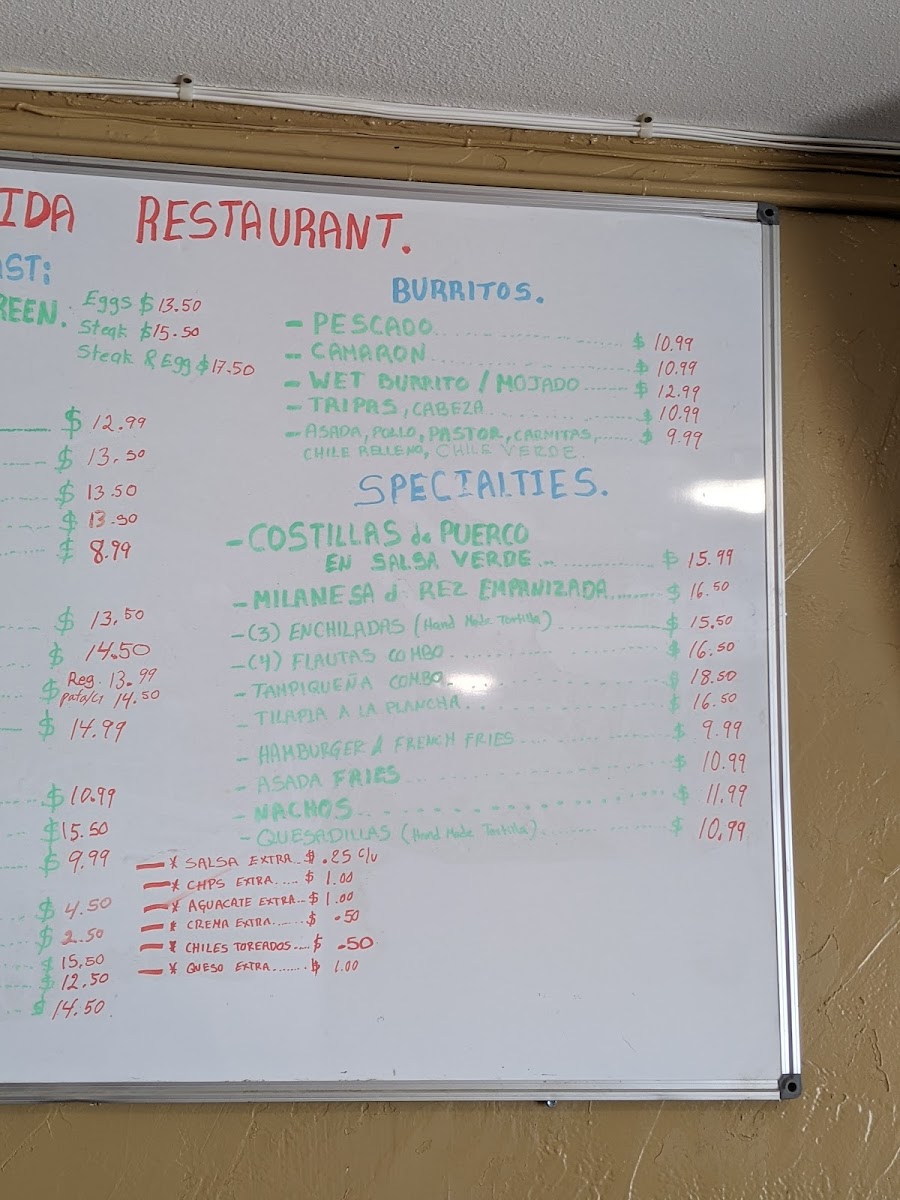 IDA RESTAURANT.
AST:
REEN. Eggs $13.50
Steak $15.50
Steak & Egg $17.50
$ 12.99
$ 13.50
$ 13.50
$ 13.50
$ 8.99
$ 13.50
$ 14.50
$ Reg. 13.99
14.50
$ 14.99
$ 10.99
$ 15.50
$ 9.99
$ 4.50
$ 2.50
$ 15.50
$ 12.50
$ 14.50
BURRITOS.
- PESCADO $ 10.99
- CAMARON $ 10.99
- WET BURRITO / MOJADO $ 12.99
- TRIPAS, CABEZA $ 10.99
- ASADA, POLLO, PASTOR, CARNITAS, $ 9.99
CHILE RELLENO, CHILE VERDE.
SPECIALTIES.
- COSTILLAS de PUERCO
EN SALSA VERDE $ 15.99
- MILANESA d REZ EMPANIZADA $ 16.50
- (3) ENCHILADAS (Hand Made Tortilla) $ 15.50
- (4) FLAUTAS COMBO $ 16.50
- TAMPIQUEÑA COMBO $ 18.50
- TILAPIA A LA PLANCHA $ 16.50
- HAMBURGER & FRENCH FRIES $ 9.99
- ASADA FRIES $ 10.99
- NACHOS $ 11.99
- QUESADILLAS (Hand Made Tortilla) $ 10.99
* SALSA EXTRA $ .25 c/u
* CHPS EXTRA $ 1.00
* AGUACATE EXTRA $ 1.00
* CREMA EXTRA $ .50
* CHILES TOREADOS $ .50
* QUESO EXTRA $ 1.00